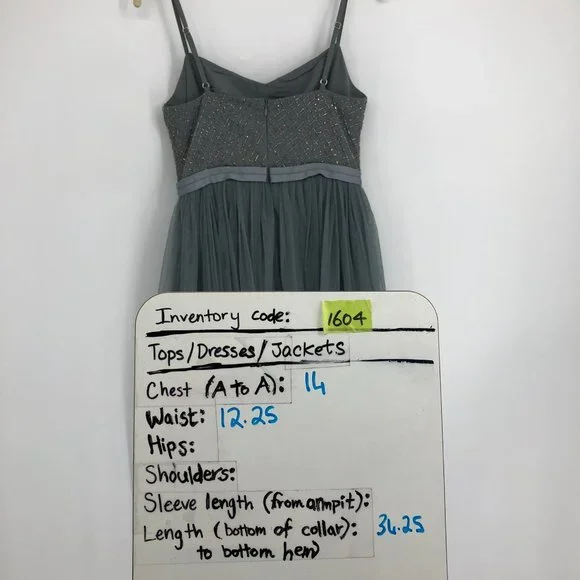 Inventory code: 1604
Tops/Dresses/Jackets
Chest (A to A): 14
Waist: 12.25
Hips:
Shoulders:
Sleeve length (from armpit):
Length (bottom of collar): 34.25
to bottom hem)